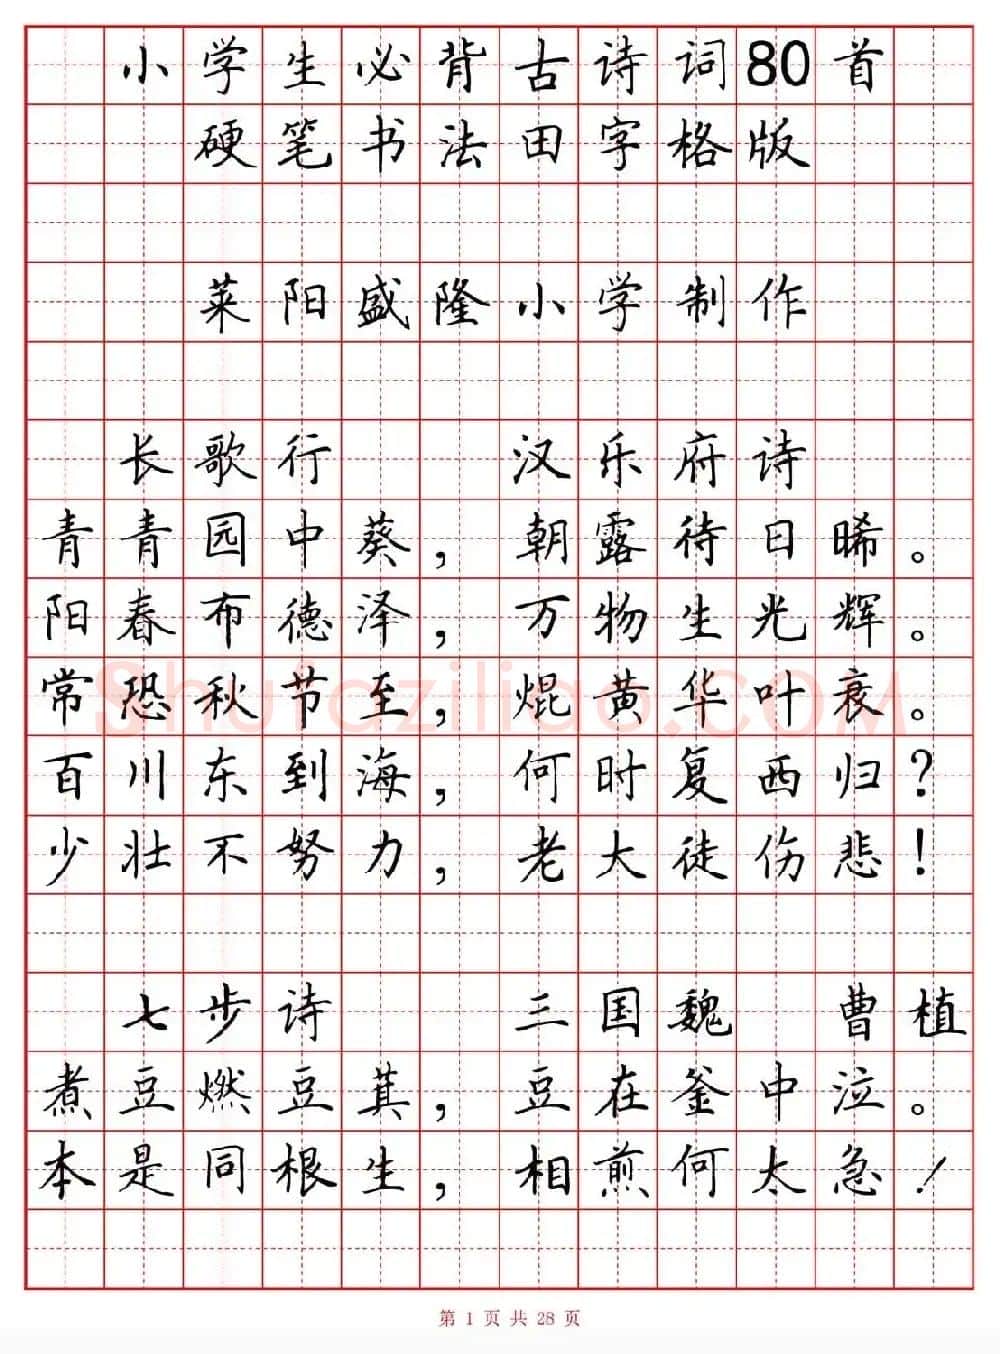 小学生必背古诗词80首
硬笔书法田字格版
莱阳盛隆小学制作
长歌行 汉乐府诗
青青园中葵，朝露待日晞。
阳春布德泽，万物生光辉。
常恐秋节至，焜黄华叶衰。
百川东到海，何时复西归？
少壮不努力，老大徒伤悲！
七步诗 三国魏 曹植
煮豆燃豆萁，豆在釜中泣。
本是同根生，相煎何太急！
Shufaziliao.COM
第 1 页 共 28 页